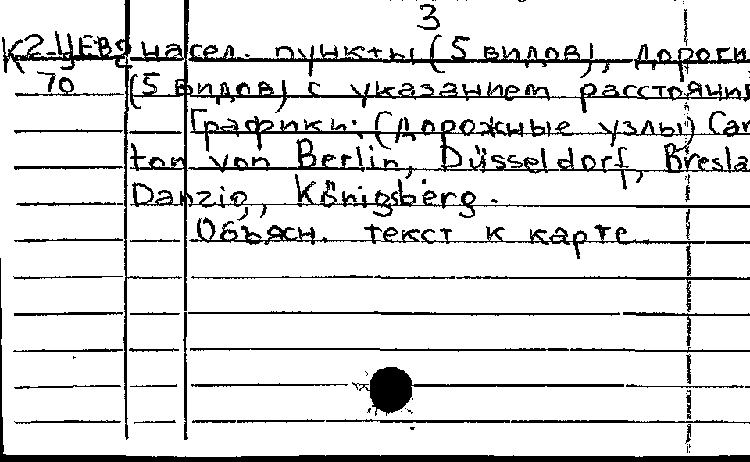 3
К2-ЦЕВ9 насел. пункты (5 видов), дороги
70 (5 видов) с указанием расстояни
Графики: (дорожные узлы) Can
ton von Berlin, Düsseldorf, Bresla
Danzig, Königsberg.
Объясн. текст к карте.